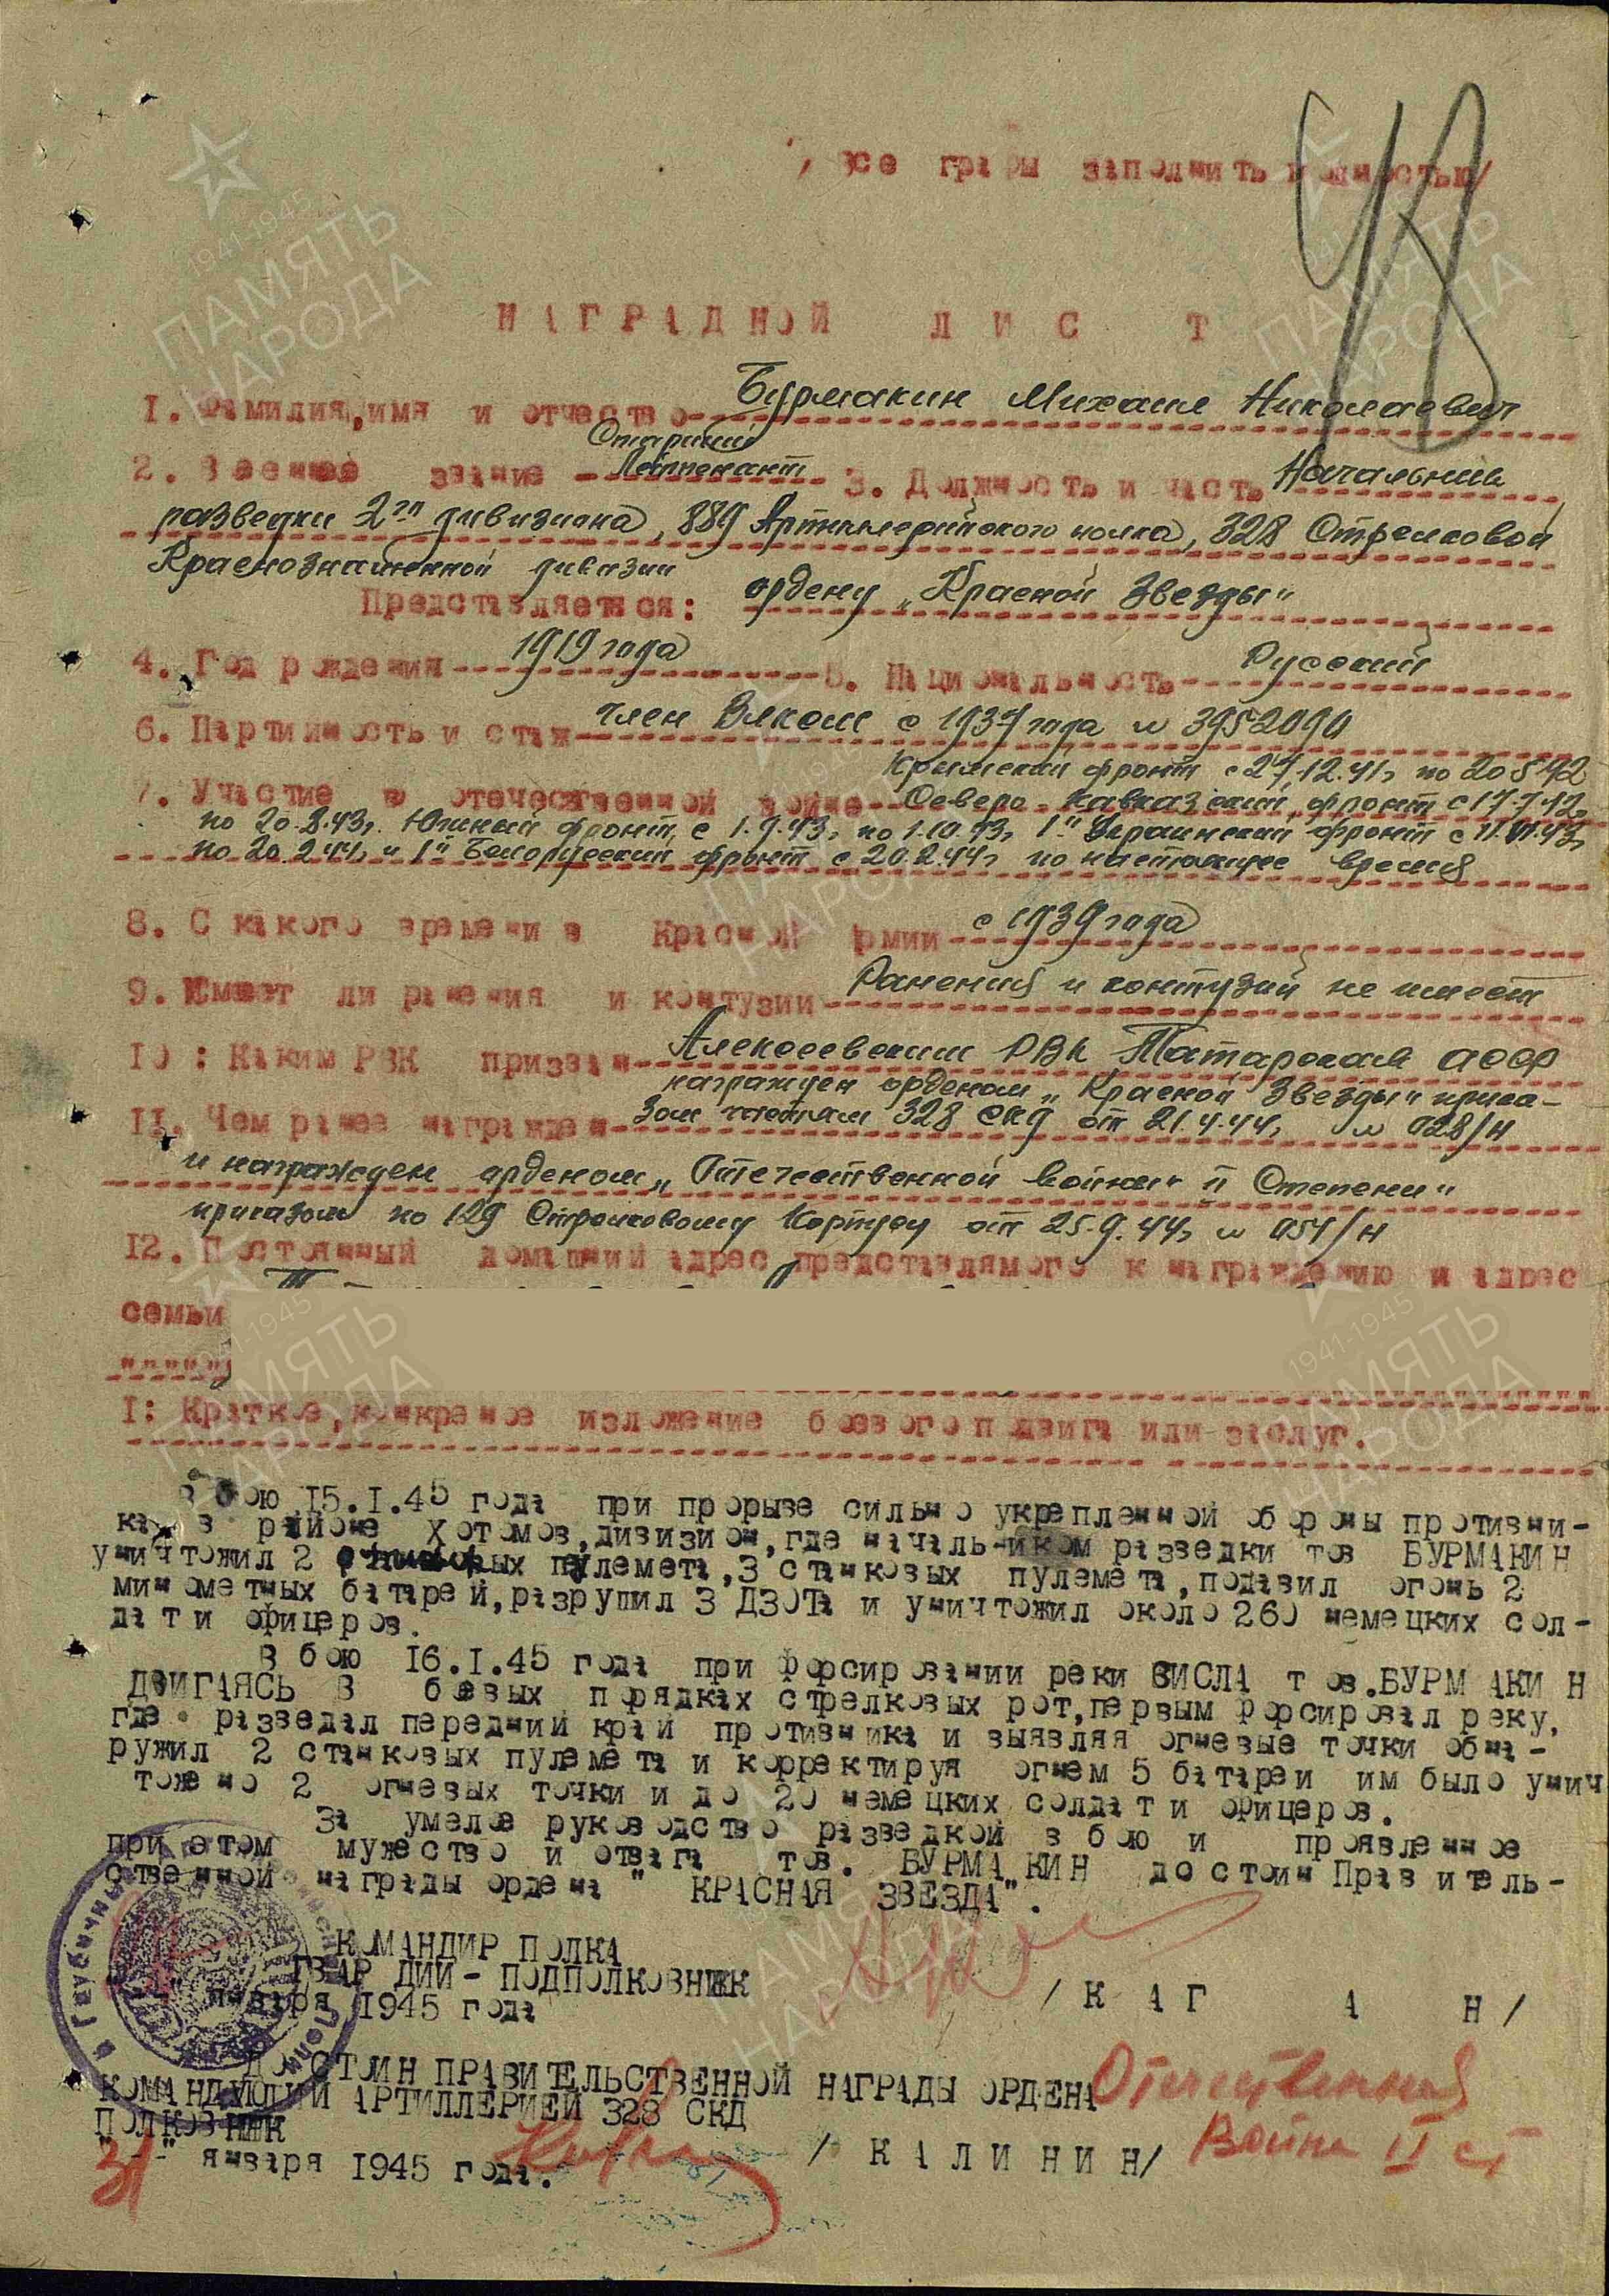 / все графы заполнить полностью/
НАГРАДНОЙ ЛИСТ
1. Фамилия, имя и отчество Бурмакин Михаил Николаевич
2. Военное звание Старший Лейтенант 3. Должность и часть Начальник
разведки 2го дивизиона, 889 Артиллерийского полка, 328 Стрелковой
Краснознаменной дивизии
Представляется: ордену „Красной Звезды"
4. Год рождения 1919 года 5. Национальность Русский
6. Партийность и стаж член ВЛКСМ с 1937 года №
7. Участие в отечественной войне Крымский фронт с 27.12.41г по 20.5.42
Северо-Кавказский фронт с 17.7.42г
по 20.2.43г. Южный фронт с 1.9.43г по 1.10.43г 1й Украинский фронт с
по 20.2.44г и 1й Белорусский фронт с 20.2.44г по настоящее время
8. С какого времени в Красной Армии с 1939 года
9. Имеет ли ранения и контузии Ранений и контузий не имеет
10: Каким РВК призван Алексеевским РВК Татарская АССР
11. Чем ранее награжден награжден орденом „Красной Звезды" прика-
зом частям 328 СКД от 21.4.44г № 028/н
и награжден орденом „Отечественной войны II Степени"
приказом по 129 Стрелковому Корпусу от 25.9.44г № 051/н
12. Постоянный домашний адрес представлямого к награждению и адрес
семьи
1: Краткое, конкретное изложение боевого подвига или заслуг.
В бою 15.1.45 года при прорыве сильно укрепленной обороны противни-
ка в районе Хотомов, дивизион, где начальником разведки тов БУРМАКИН
уничтожил 2 пулемета, 3 станковых пулемета, подавил огонь 2
минометных батарей, разрушил 3 ДЗОТа и уничтожил около 260 немецких сол-
дат и офицеров.
В бою 16.1.45 года при форсировании реки ВИСЛА тов. БУРМАКИН
ДВИГАЯСЬ В боевых порядках стрелковых рот, первым форсировал реку,
где разведал передний край противника и выявляя огневые точки обна-
ружил 2 станковых пулемета и корректируя огнем 5 батареи им было унич
тожено 2 огневых точки и до 20 немецких солдат и офицеров.
За умелое руководство разведкой в бою и проявленное
при этом мужество и отвага тов. БУРМАКИН достоин Правитель-
ственной награды ордена " КРАСНАЯ ЗВЕЗДА".
КОМАНДИР ПОЛКА
ГВАРДИИ - ПОДПОЛКОВНИК
/ К А Г А Н /
января 1945 года
ДОСТОИН ПРАВИТЕЛЬСТВЕННОЙ НАГРАДЫ ОРДЕНА Отечественная
Война II ст
КОМАНДУЮЩИЙ АРТИЛЛЕРИЕЙ 328 СКД
ПОЛКОВНИК
/ К А Л И Н И Н /
"31" января 1945 года.
1941-1945
ПАМЯТЬ
НАРОДА